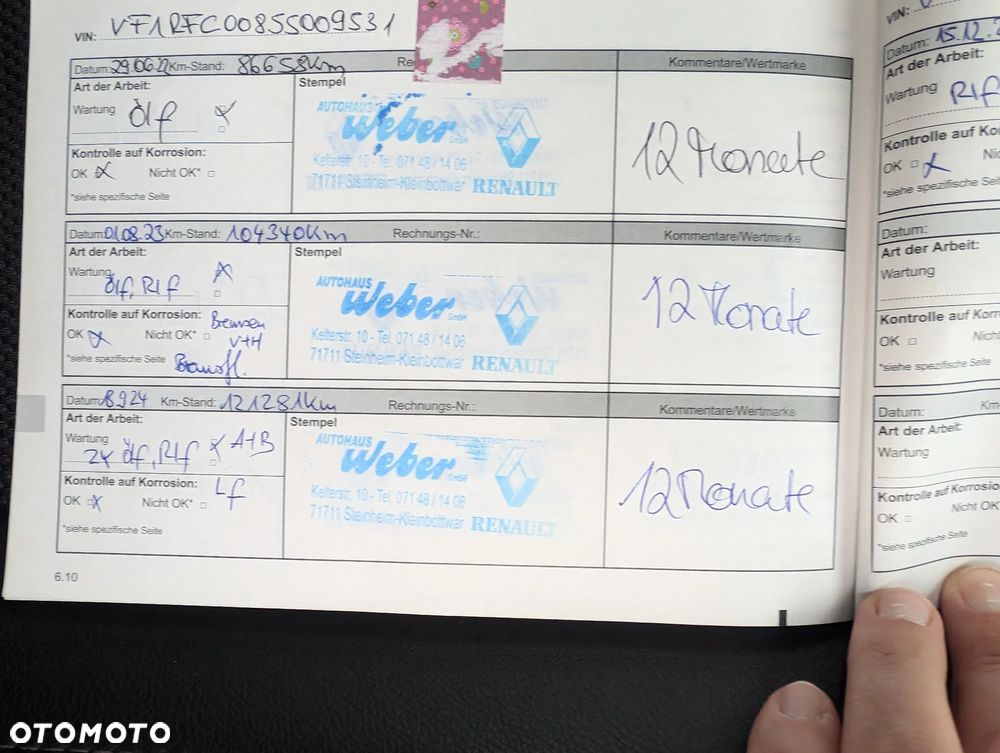 VIN: VF1RFC00855009531
Datum: 29.06.22 Km-Stand: 86658Km
Kommentare/Wertmarke
Art der Arbeit:
Stempel
Wartung Ölf
Kontrolle auf Korrosion:
OK Nicht OK*
*siehe spezifische Seite
AUTOHAUS
Weber GmbH
Kelterstr. 10 - Tel. 071 48 / 14 06
71711 Steinheim-Kleinbottwar RENAULT
12 Monate
Datum: 01.08.23 Km-Stand: 104340Km Rechnungs-Nr.: Kommentare/Wertmarke
Art der Arbeit:
Stempel
Wartung
ölf, RLf
Kontrolle auf Korrosion: Bremsen
OK Nicht OK* V+H
*siehe spezifische Seite
AUTOHAUS
Weber GmbH
Kelterstr. 10 - Tel. 071 48 / 14 06
71711 Steinheim-Kleinbottwar RENAULT
12 Monate
Datum: 8.9.24 Km-Stand: 121281Km Rechnungs-Nr.: Kommentare/Wertmarke
Art der Arbeit:
Stempel
Wartung A+B
2x ölf, RLf
Kontrolle auf Korrosion: Lf
OK Nicht OK*
*siehe spezifische Seite
AUTOHAUS
Weber GmbH
Kelterstr. 10 - Tel. 071 48 / 14 06
71711 Steinheim-Kleinbottwar RENAULT
12 Monate
6.10
VIN:
Datum: 15.12.
Art der Arbeit:
Wartung RLf
Kontrolle auf Korr
OK
*siehe spezifische Seite
Datum:
Art der Arbeit:
Wartung
Kontrolle auf Korr
OK Nicht
*siehe spezifische Seite
Datum: Km-
Art der Arbeit:
Wartung
Kontrolle auf Korrosio
OK Nicht OK
*siehe spezifische Seite
OTOMOTO